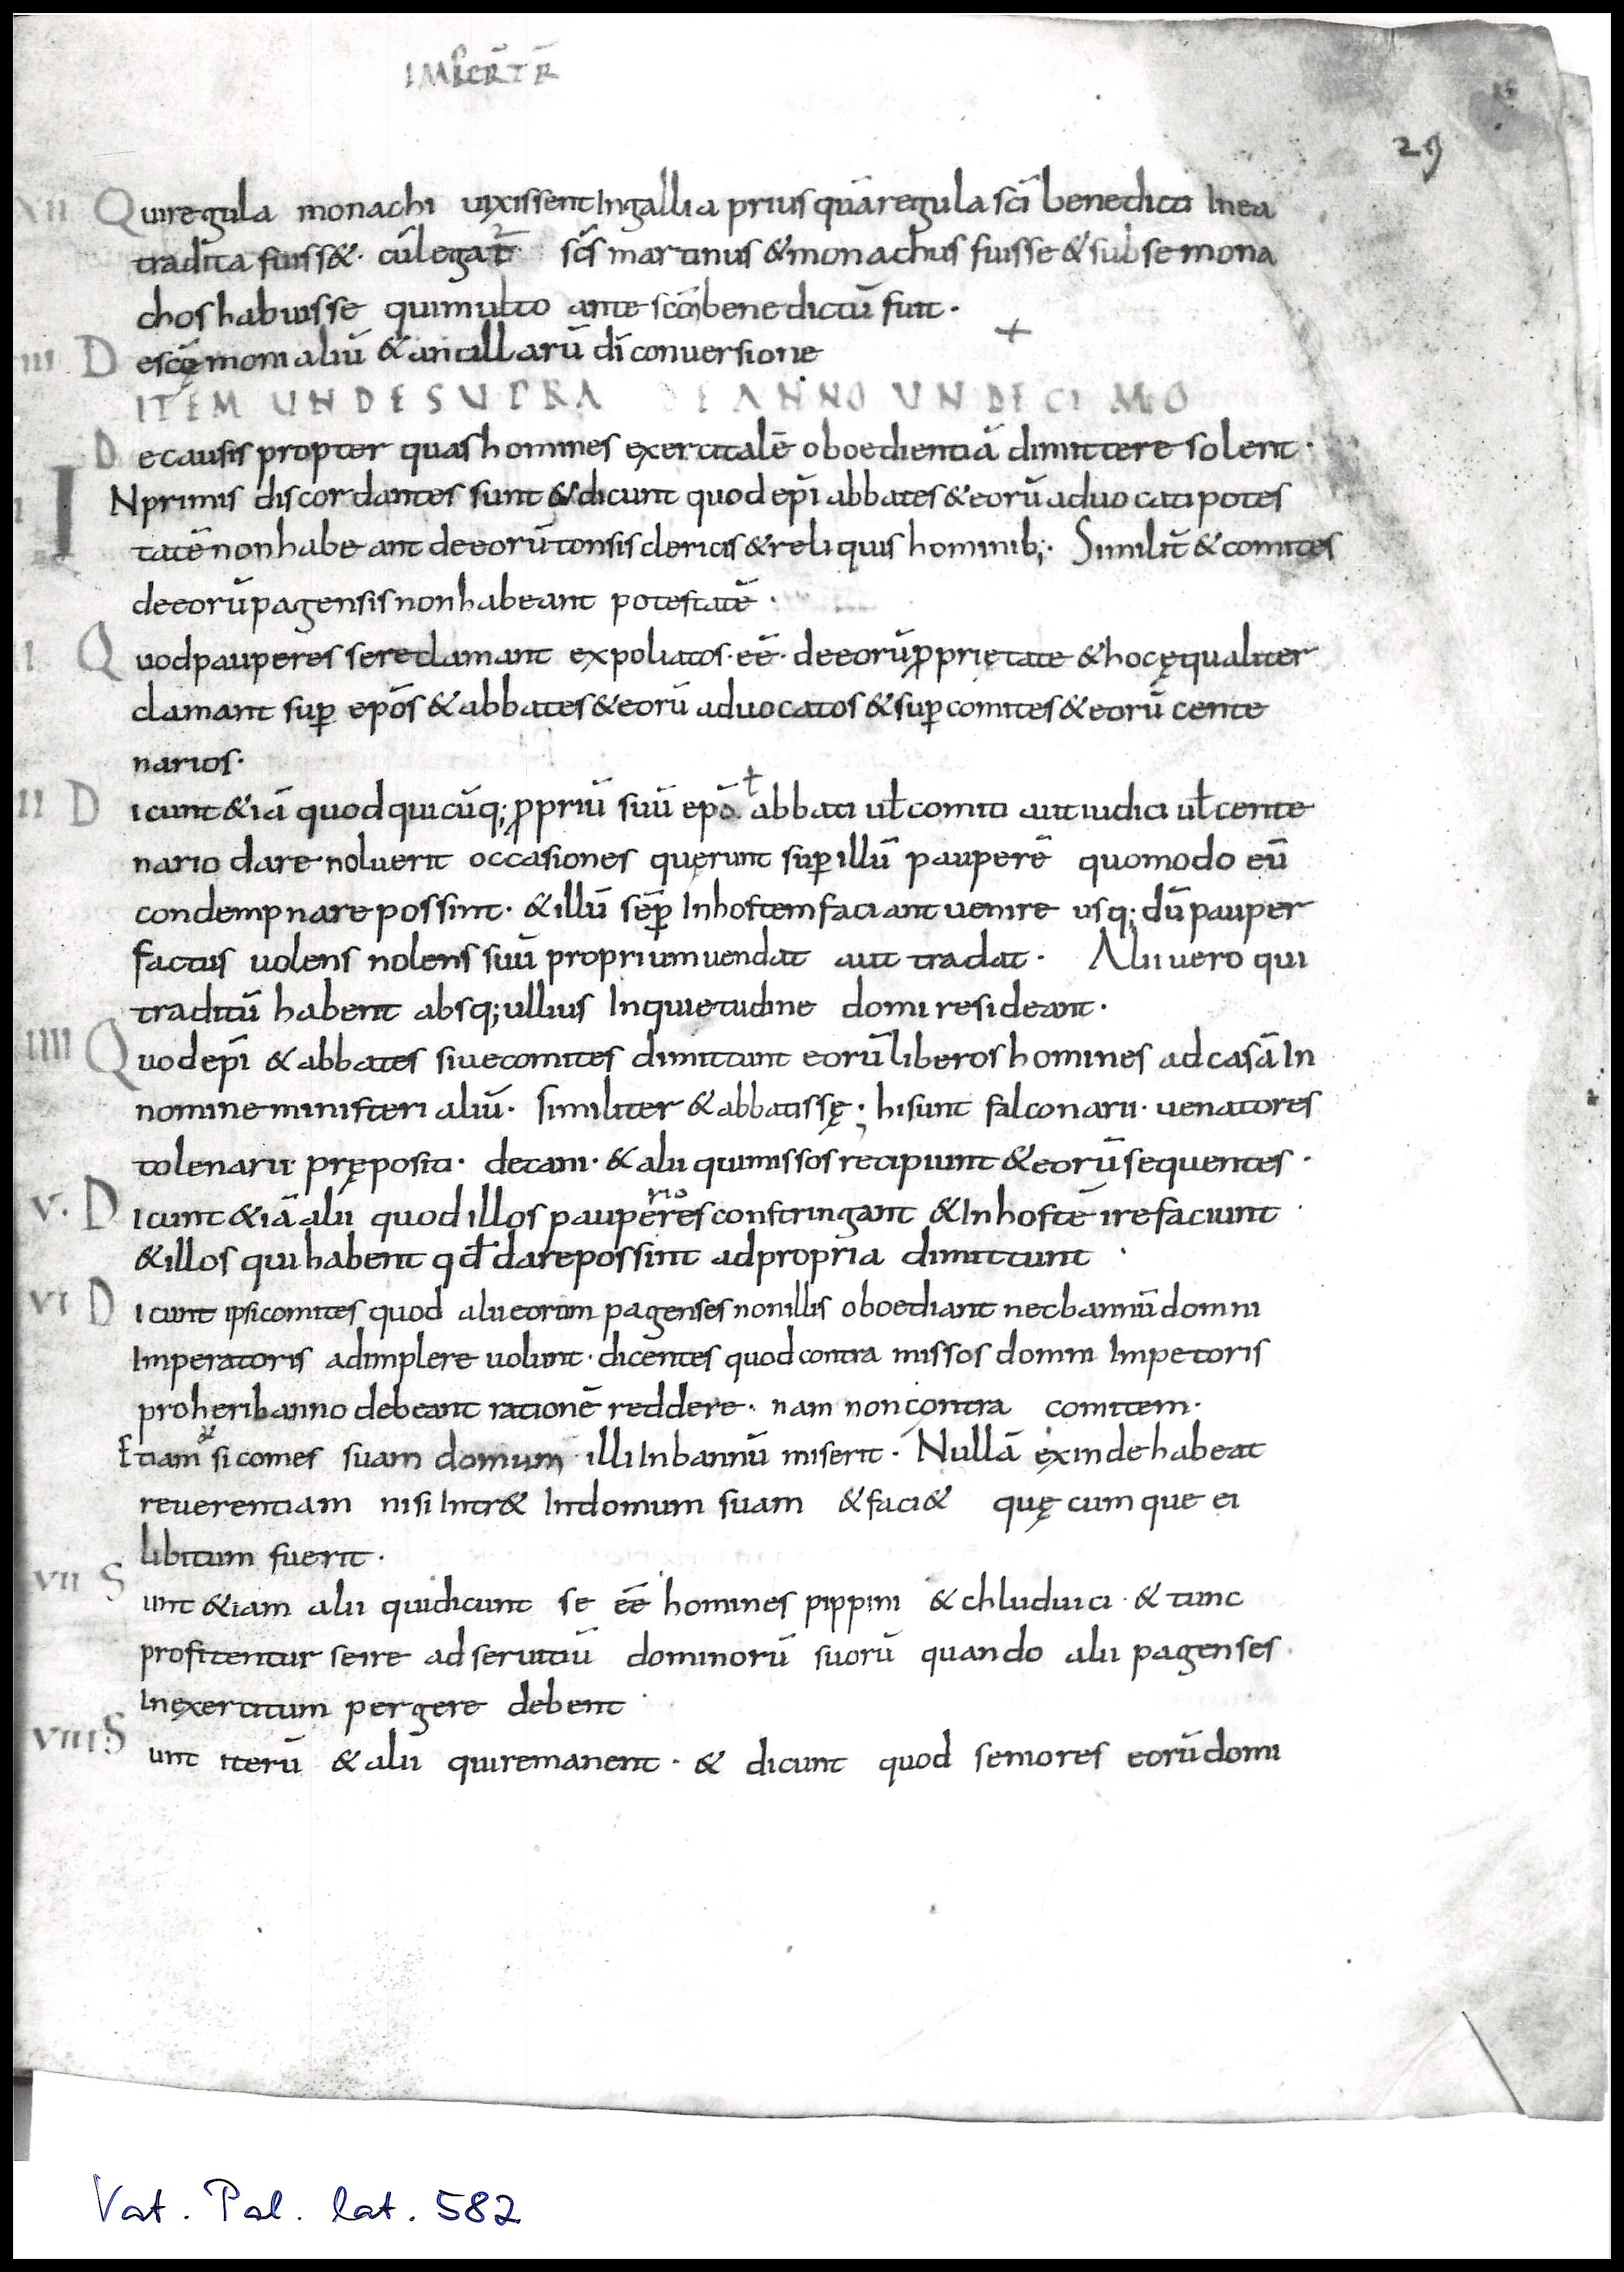 IMPERTR
29
XII Quiregula monachi uixissent Ingallia prius quāregula sc̄i benedicti Inea
tradita fuiss&· cūlegat̄ sc̄s martinus &monachus fuisse &subse mona
chos habuisse quimulto ante sc̄m benedictū fuit·
III Descōmonialiū &ancillarū dī conuersione
ITEM UNDE SUPRA DE ANNO UNDECIMO
Decausis propter quas homines exercitalē oboedientiā dimittere solent·
I INprimis discordantes sunt &dicunt quod ep̄i abbates &eorū aduocati potes
tatē non habeant deeorū tonsis clericis &reliquis hominib;· Similit̄ &comites
deeorū pagensis non habeant potestatē·
II Quod pauperes sereclamant expoliatos· eē· deeorū ꝓprietate &hocęqualiter
clamant suꝑ ep̄os &abbates &eorū aduocatos &suꝑ comites &eorū cente
narios·
III Dicunt &iā quod quicūq; ꝓpriū suū ep̄o ł abbati uł comiti aut iudici uł cente
nario dare noluerit occasiones quęrunt suꝑ illū pauperē quomodo eū
condempnare possint· &illū seꝑ Inhostem faciant uenire usq; dū pauper
factus uolens nolens suū proprium uendat aut tradat· Alii uero qui
traditū habent absq; ullius Inquietudine domi resideant·
IIII Quod ep̄i &abbates siue comites dimittunt eorū liberos homines ad casā In
nomine ministerialiū· similiter &abbatissę· hi sunt falconarii· uenatores
tolenarii prępositi· decani· &alii qui missos recipiunt &eorū sequentes·
V. Dicunt &iā alii quod illos pauperiores constringant &Inhostē ire faciunt·
&illos qui habent qđ dare possint ad propria dimittunt·
VI Dicunt ipsi comites quod alii eorum pagenses non illis oboediant nec bannū domni
Imperatoris adimplere uolunt· dicentes quod contra missos domni Imperatoris
pro heribanno debeant rationē reddere· nam non contra comitem·
Etiam & si comes suam domum illi Inbannū miserit· Nullā exinde habeat
reuerentiam nisi Intr& Indomum suam &faci& quęcumque ei
libitum fuerit·
VII Sunt &iam alii qui dicunt se eē homines pippini &chluduici· &tunc
profitentur se ire ad seruitiū dominorū suorū quando alii pagenses
Inexercitum pergere debent·
VIII Sunt iterū &alii qui remanent· & dicunt quod seniores eorū domi
Vat. Pal. lat. 582